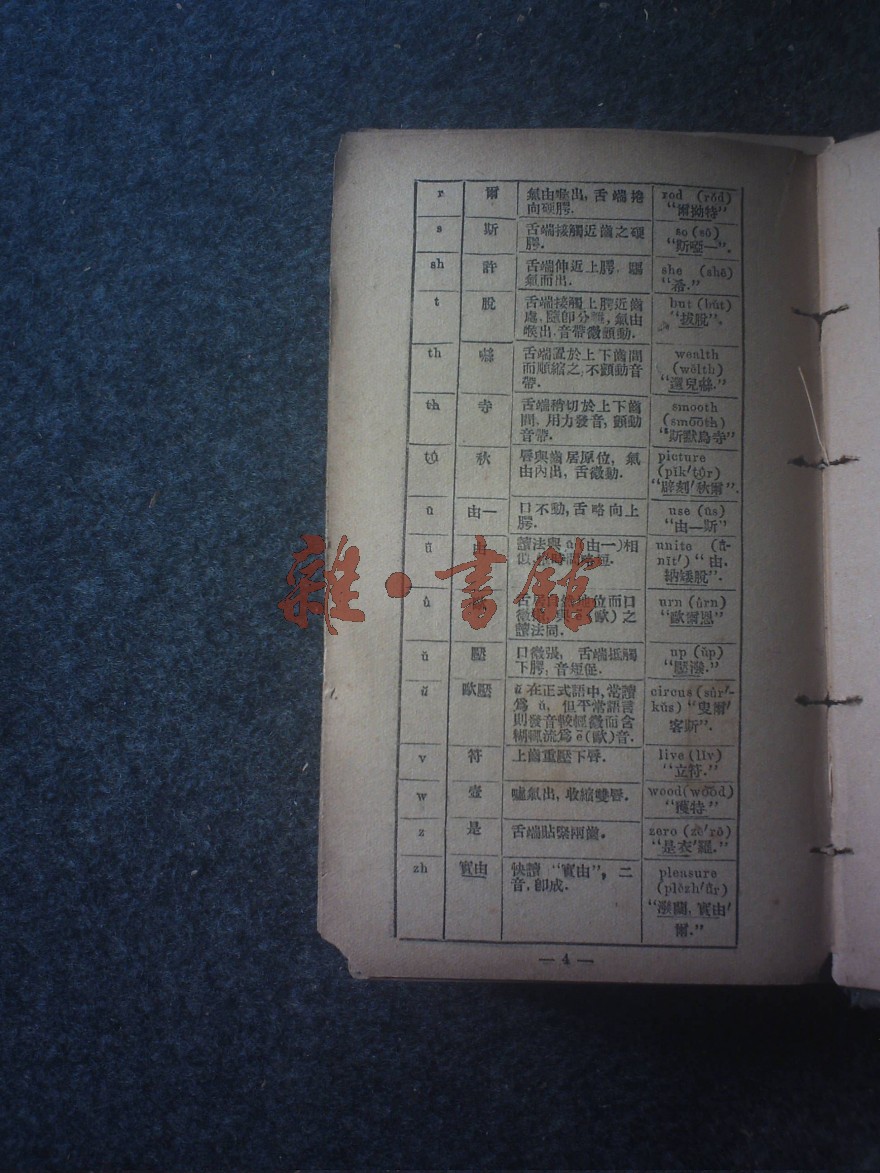 r 爾 氣由喉出, 舌端捲 rod (rŏd)
向硬腭. “爾拗特”
s 斯 舌端接觸近齒之硬 so (sō)
腭. “斯啞一”.
sh 許 舌端伸近上腭, 氣而出. she (shē)
“希.”
t 脫 舌端接觸上腭近齒 but (bŭt)
處, 隨卽分離, 氣由 “拔脫”.
喉出, 音帶微顫動.
th 舌端置於上下齒間 wealth
而順縮之, 不顫動音 (wĕlth)
帶.
th 寺 舌端稍切於上下齒 smooth
間, 用力發音, 顫動 (smōōth)
音帶. “斯獸鳥寺”
tů 秋 唇與齒居原位, 氣 picture
由內出, 舌微動. (pĭk′tůr)
“劈刻′秋爾”.
ū 由一 口不動, 舌略向上 use (ūs)
腭. “由一斯”
由 讀法與 ū (由一) 相 unite
nīt′) “由,
urn (ûrn)
讀法同. “歐爾恩”
ŭ 壓 口微張, 舌端抵觸 up (ŭp)
下腭, 音短促. “壓潑.”
歐壓 在正式語中, 常讀 circus (sûr′-
爲 ŭ, 但平常語言
則發音較輕微而含 客斯”.
糊, 流爲 (歐) 音.
v 符 上齒重壓下唇. live (lĭv)
“立符.”
w 壺 噓氣出, 收縮雙唇. wood (wŏŏd)
z 是 舌端貼緊兩齒. zero (zē′rō)
“是衣′羅.”
zh 實由 快讀 “實由”, 二 pleasure
音, 卽成. (plĕzh′ůr)
實由′
爾.”
— 4 —
雜·書館